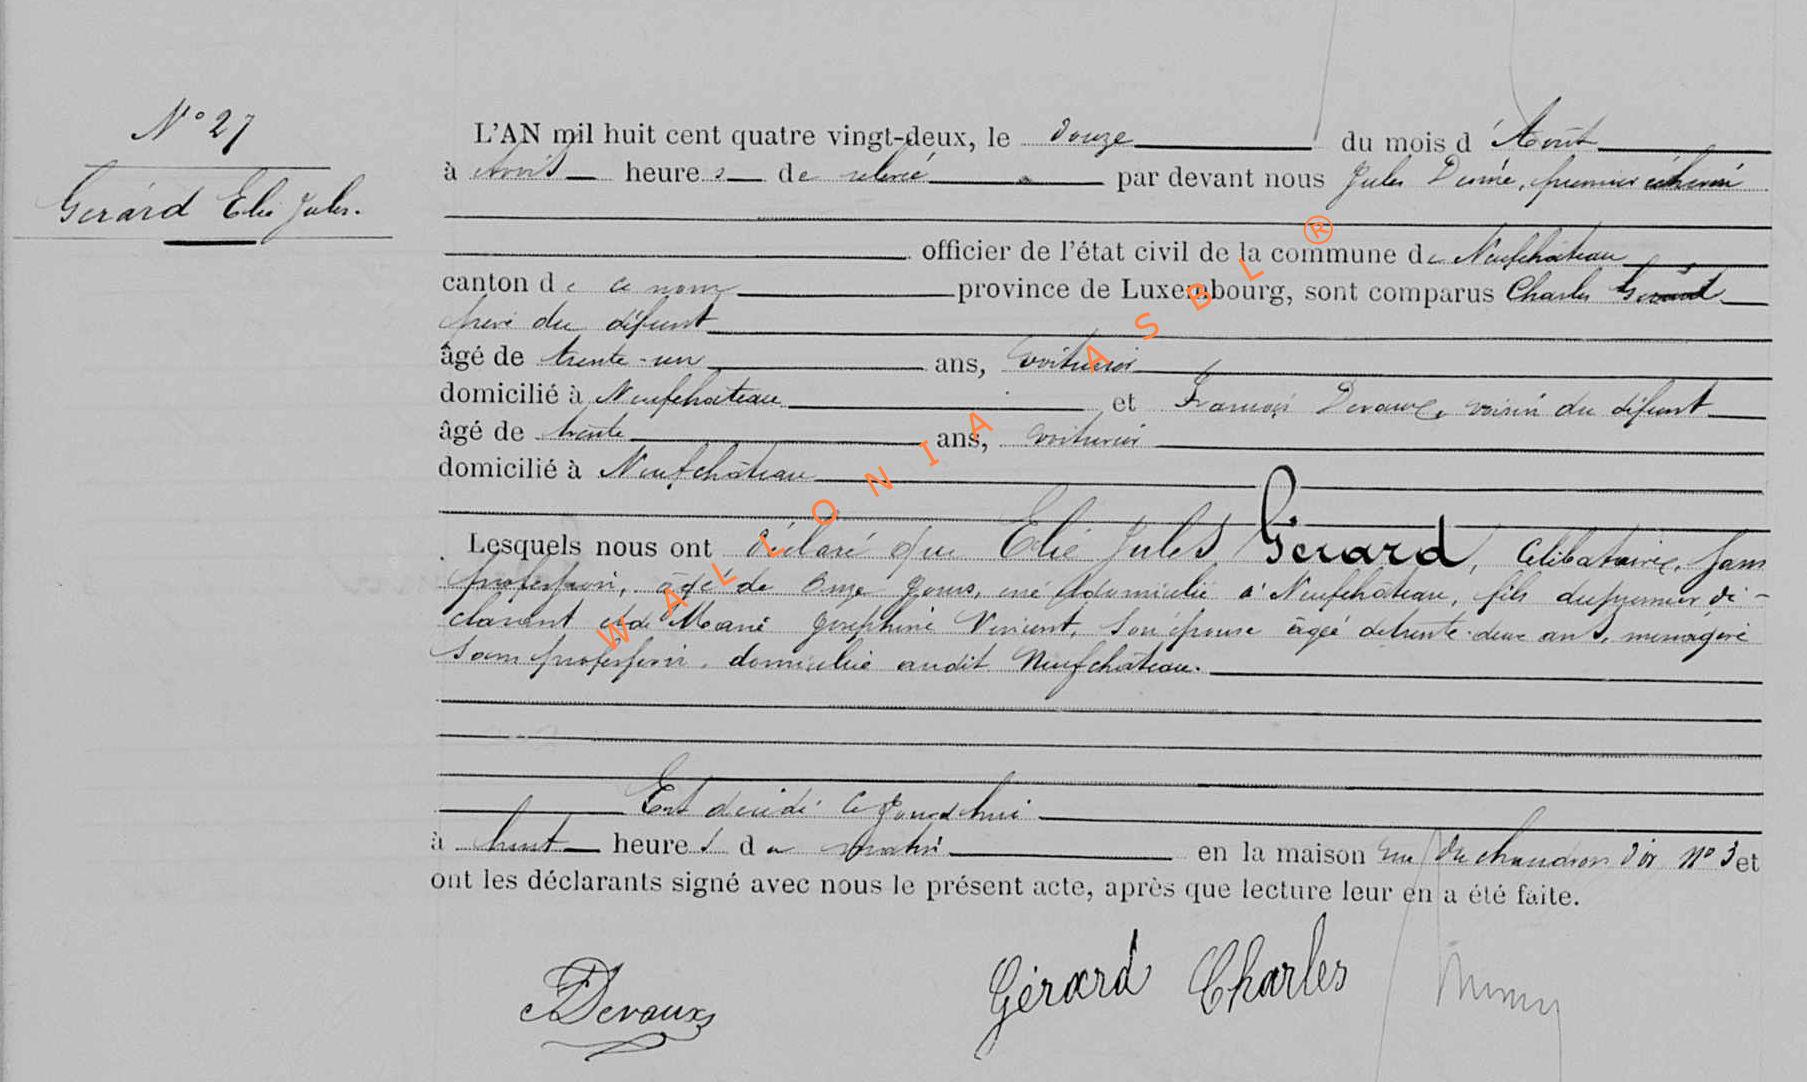 N° 27
Gérard Elie Jules.
L'AN mil huit cent quatre vingt-deux, le douze du mois d'Août
à trois heures de relevé par devant nous Jules premier échevin
officier de l'état civil de la commune de Neufchâteau
canton de ce nom province de Luxembourg, sont comparus Charles Gérard
père du défunt
âgé de trente-un ans, voiturier
domicilié à Neufchâteau et François Devaux, voisin du défunt
âgé de trente ans, voiturier
domicilié à Neufchâteau
Lesquels nous ont déclaré que Elie Jules Gérard, célibataire, sans
profession, âgé de onze jours, né & domicilié à Neufchâteau, fils du premier dé-
clarant et de Marie Joséphine Vincent, son épouse âgée de trente-deux ans, ménagère
sans profession, domiciliée audit Neufchâteau.
Est décédé ce jourd'hui
à huit heures du matin en la maison rue du chaudron d'or N° 3 et
ont les déclarants signé avec nous le présent acte, après que lecture leur en a été faite.
Devaux Gérard Charles
WALLONIA ASBL ®